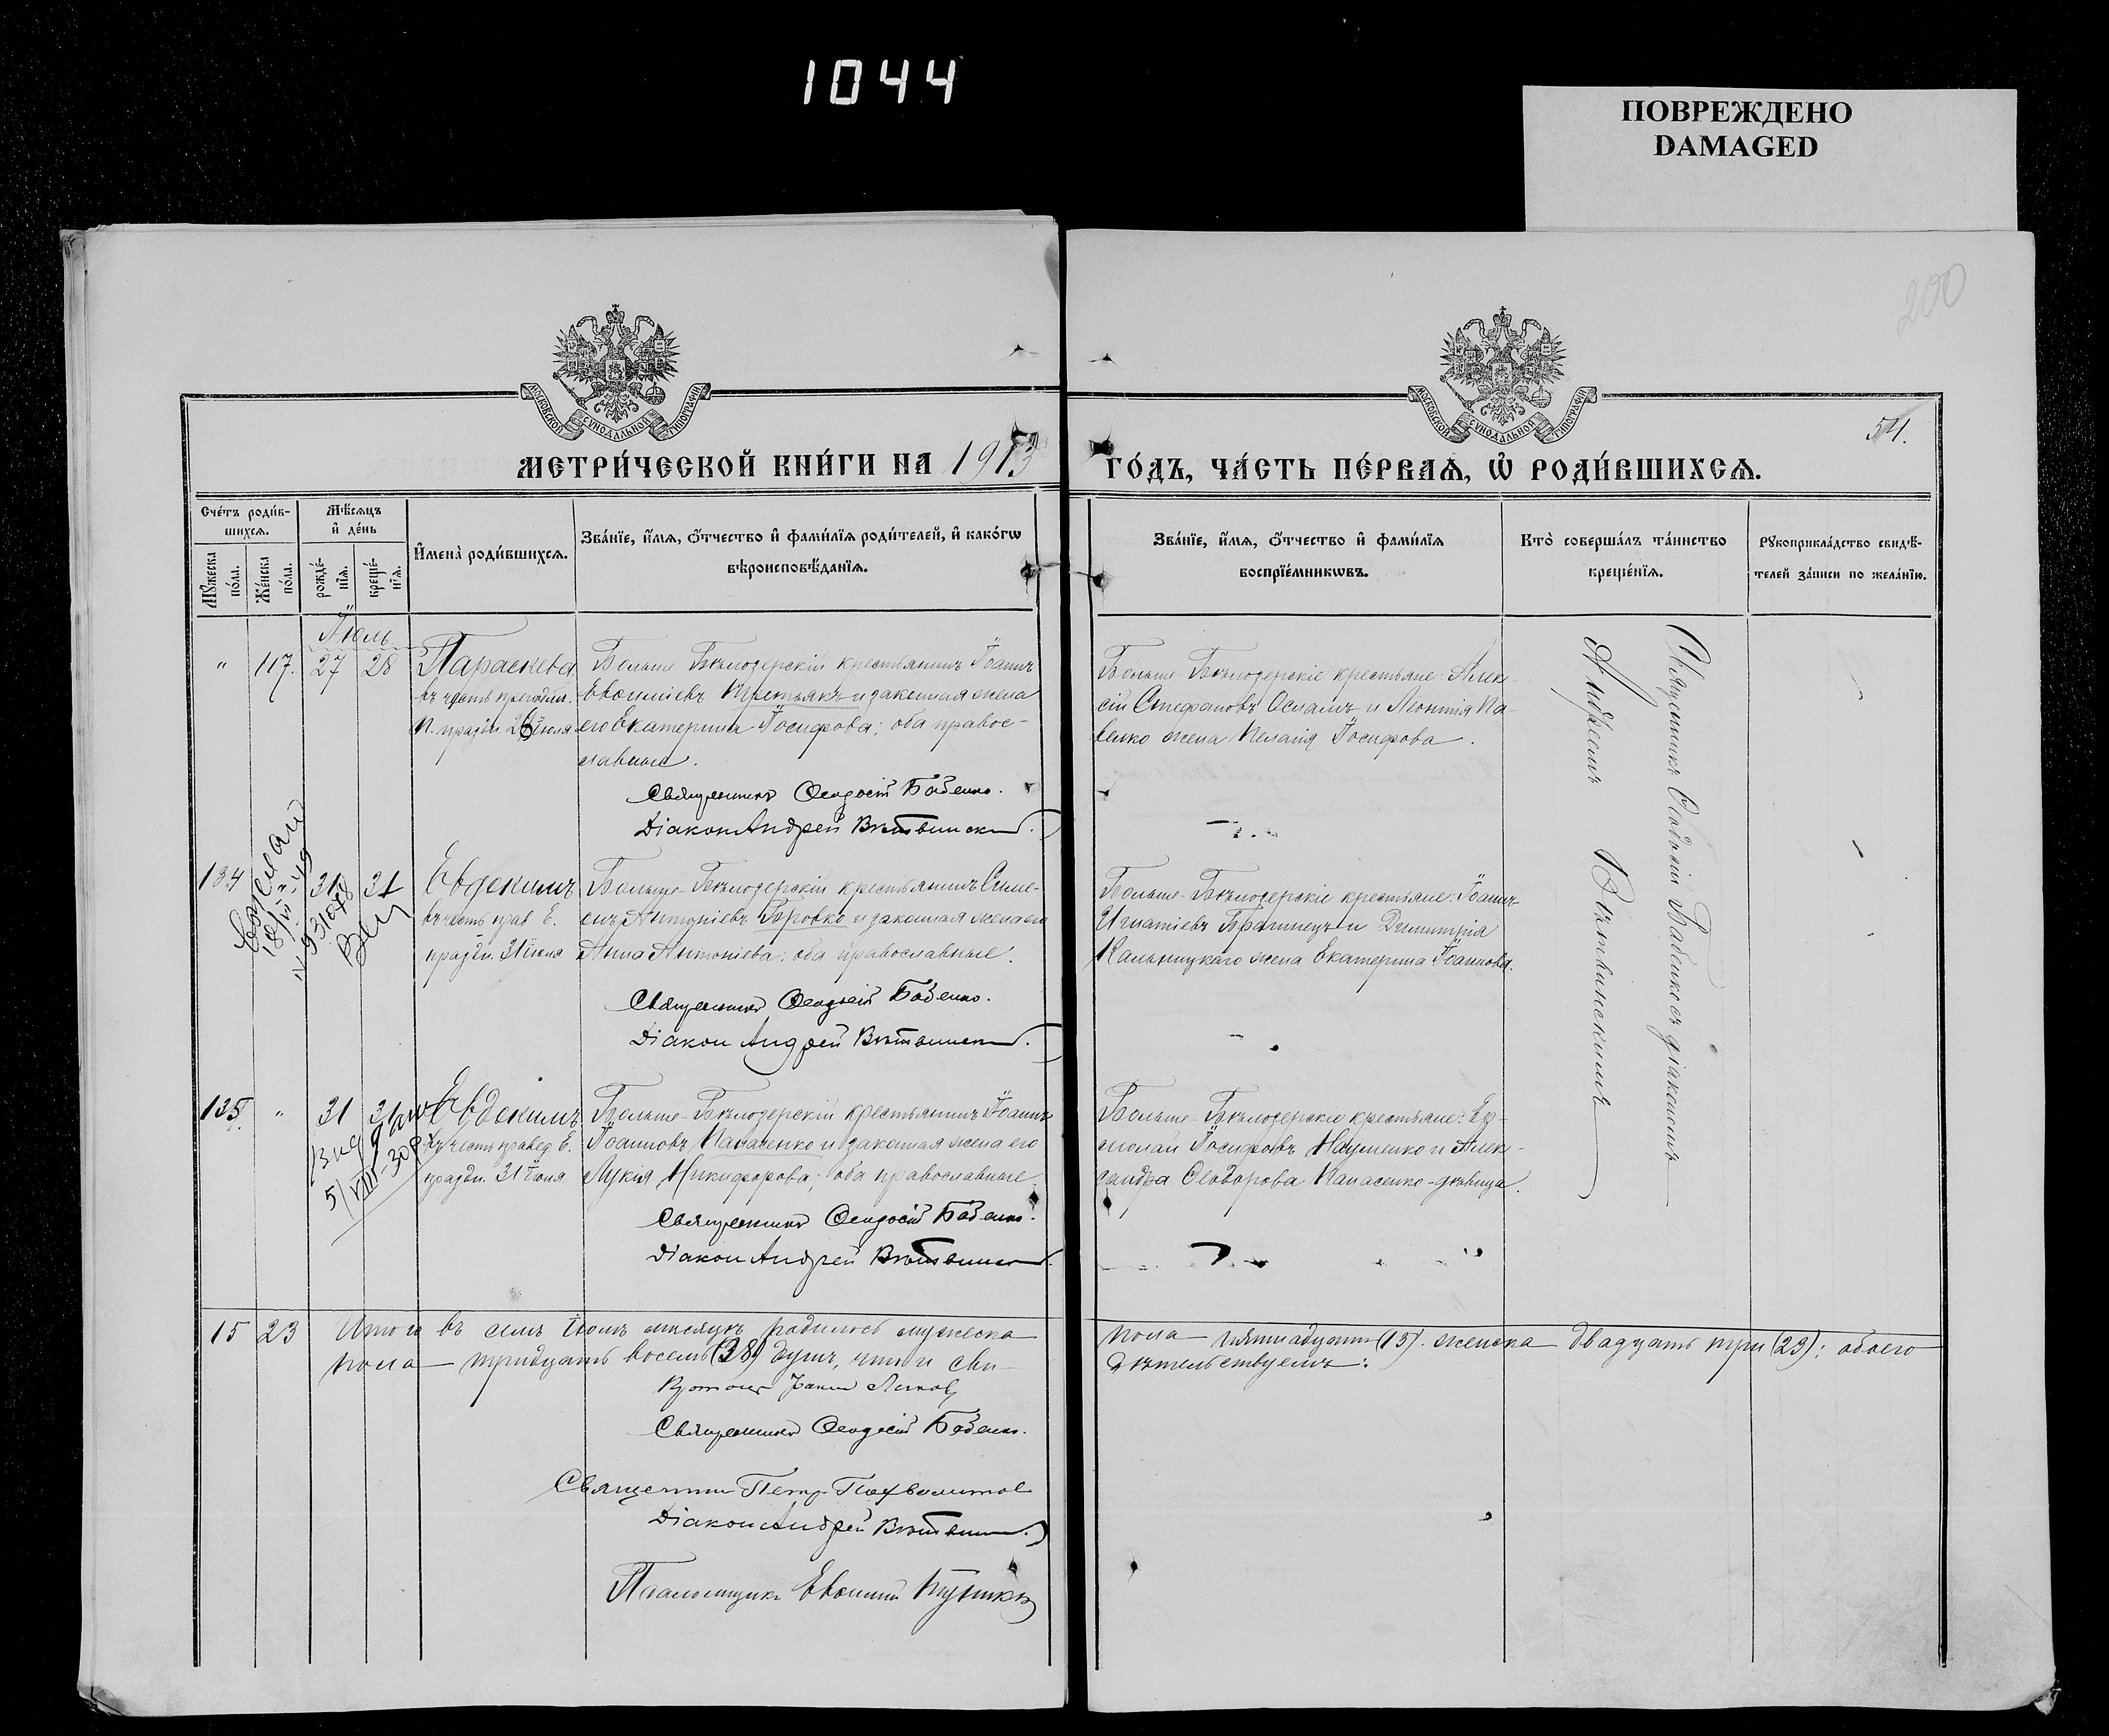 1044
ПОВРЕЖДЕНО
DAMAGED
200
МОСКОВСКОЙ СѴНОДАЛЬНОЙ ТИПОГРАФІИ
МОСКОВСКОЙ СѴНОДАЛЬНОЙ ТИПОГРАФІИ
54.
МЕТРИ́ЧЕСКОЙ КНИ́ГИ НА 1913
ГО́ДЪ, ЧА́СТЬ ПЕ́РВАѦ, Ѡ҆ РОДИ́ВШИХСѦ.
Сче́тъ роди́в-
шихсѧ.
Мꙋ́жеска
по́ла.
Же́нска
по́ла.
Мѣ́сѧцъ
и҆ де́нь
рожде́-
нїѧ.
креще́-
нїѧ.
И҆мена̀ роди́вшихсѧ.
Зва́нїе, и҆́мѧ, ѻ҆́тчество и҆ фами́лїѧ роди́телей, и҆ како́гѡ
вѣроисповѣ́данїѧ.
Зва́нїе, и҆́мѧ, ѻ҆́тчество и҆ фами́лїѧ
воспрїе́мникѡвъ.
Кто̀ соверша́лъ та́инство
креще́нїѧ.
Рꙋкоприкла́дство свидѣ́-
телей за́писи по жела́нїю.
Іюль
" 117. 27 28 Параскева
въ честь преподобн.
П. праздн. 28 іюля
Больше-Бѣлозерскій крестьянинъ Іоаннъ
Евѳиміевъ Третьякъ и законная жена
его Екатерина Іосифова; оба правос-
лавные.
Священникъ Ѳеодосій Бабенко.
Діаконъ Андрей Вѣтвинскій.
Больше-Бѣлозерскіе крестьяне: Алек-
сій Стефановъ Ослamъ и Леонтія Па-
велко жена Пелагія Іосифова.
Священникъ Ѳеодосій Бабенко съ діакономъ
Андреемъ Вѣтвинскимъ
134 31 31 Евдокимъ
въ честь прав. Е.
праздн. 31 іюля
Больше-Бѣлозерскій крестьянинъ Симе-
онъ Антоніевъ Боровко и законная жена его
Анна Антоніева; оба православные.
Священникъ Ѳеодосій Бабенко.
Діаконъ Андрей Вѣтвинскій.
Больше-Бѣлозерскіе крестьяне: Іоаннъ
Игнатіевъ Брагинецъ и Димитрія
Кальницкаго жена Екатерина Іоаннова.
135. " 31 31 Евдокимъ
въ честь правед. Е.
праздн. 31 іюля
Больше-Бѣлозерскій крестьянинъ Іоаннъ
Іоанновъ Панасенко и законная жена его
Лукія Никифорова; оба православные.
Священникъ Ѳеодосій Бабенко.
Діаконъ Андрей Вѣтвинскій.
Больше-Бѣлозерскіе крестьяне: Ер-
молай Іосифовъ Науменко и Алек-
сандра Ѳеодорова Панасенко-дѣвица.
15 23 Итого въ семъ іюлѣ мѣсяцѣ родилось мужеска
пола пятнадцать (15). женска двадцать три (23); обоего
пола тридцать восемь (38) душъ, что и сви-
дѣтельствуемъ:
Священникъ Ѳеодосій Бабенко.
Священникъ Петръ
Діаконъ Андрей Вѣтвинскій.
Псаломщикъ Евѳимій